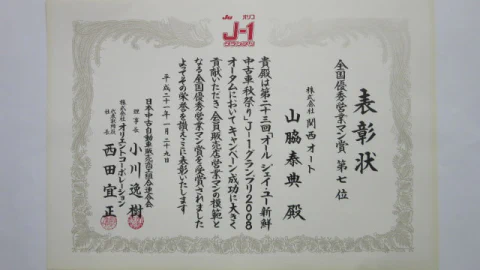 Ju オリコ
J-1
グランプリ
表彰状
全国優秀営業マン賞 第七位
株式会社 関西オート
山脇泰典 殿
貴殿は第二十三回「オールジェイ・ユー新鮮
中古車秋祭り」J-1グランプリ2008
オータムにおいてキャンペーン成功に大きく
貢献いただき、会員販売店営業マンの模範と
なる全国優秀営業マン賞を受賞されました
よってその栄誉を讃えここに表彰いたします
平成二十一年一月二十九日
日本中古自動車販売商工組合連合会
理事長 小川逸樹
株式会社オリエントコーポレーション
代表取締役社長 西田宜正